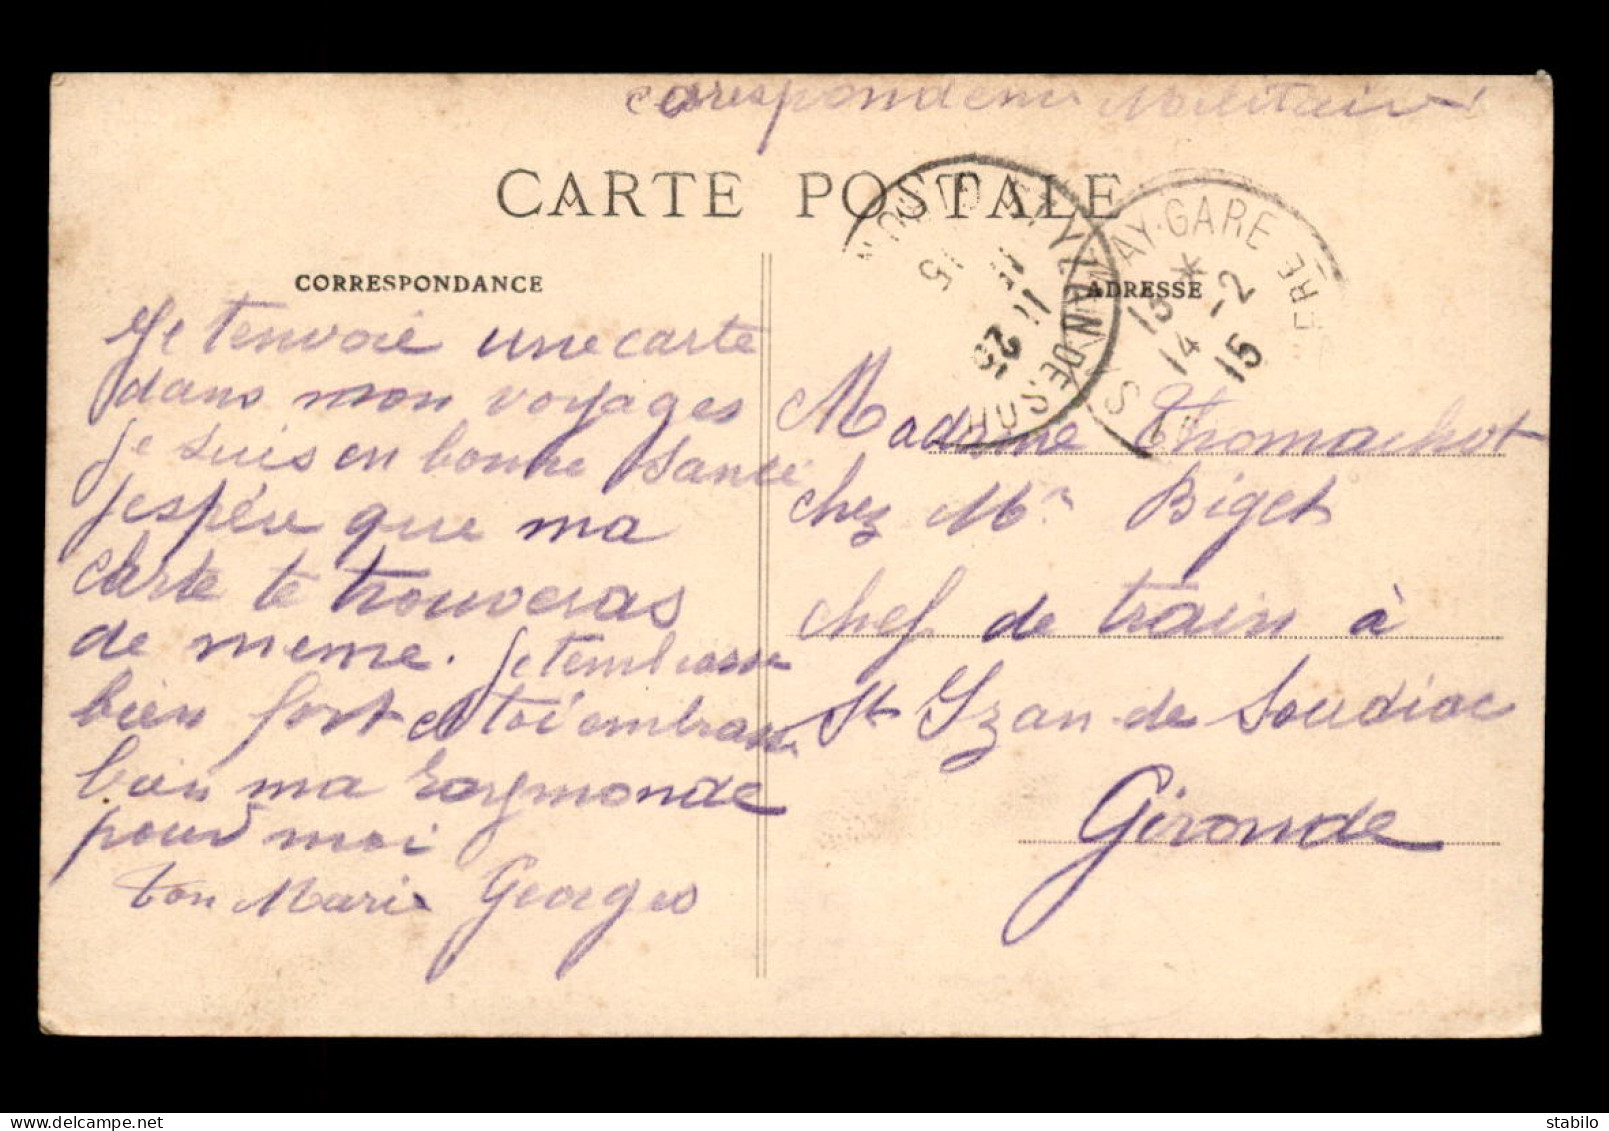 Correspondence Militaire
CARTE POSTALE
CORRESPONDANCE
ADRESSE
Je tenvoie une carte
dans mon voyages
je suis en bonne santé
jespére que ma
carte te trouveras
de meme. je tembrasse
bien fort et toi embrasse
bien ma Raymonde
pour moi
ton Mari Georges
Madame Thomachot
chez Mr Biget
chef de train à
St Yzan de Soudiac
Gironde
ST YZAN DE SOUDIAC
15
11
11 2
GARE
13 *
14 -2
15
delcampe.net
stabilo